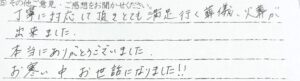 ⑤その他ご意見・ご感想をお聞かせください。
丁寧に対応して頂きとても満足行く葬儀、火葬が
出来ました。
本当にありがとうございました。
お寒い中お世話になりました!!